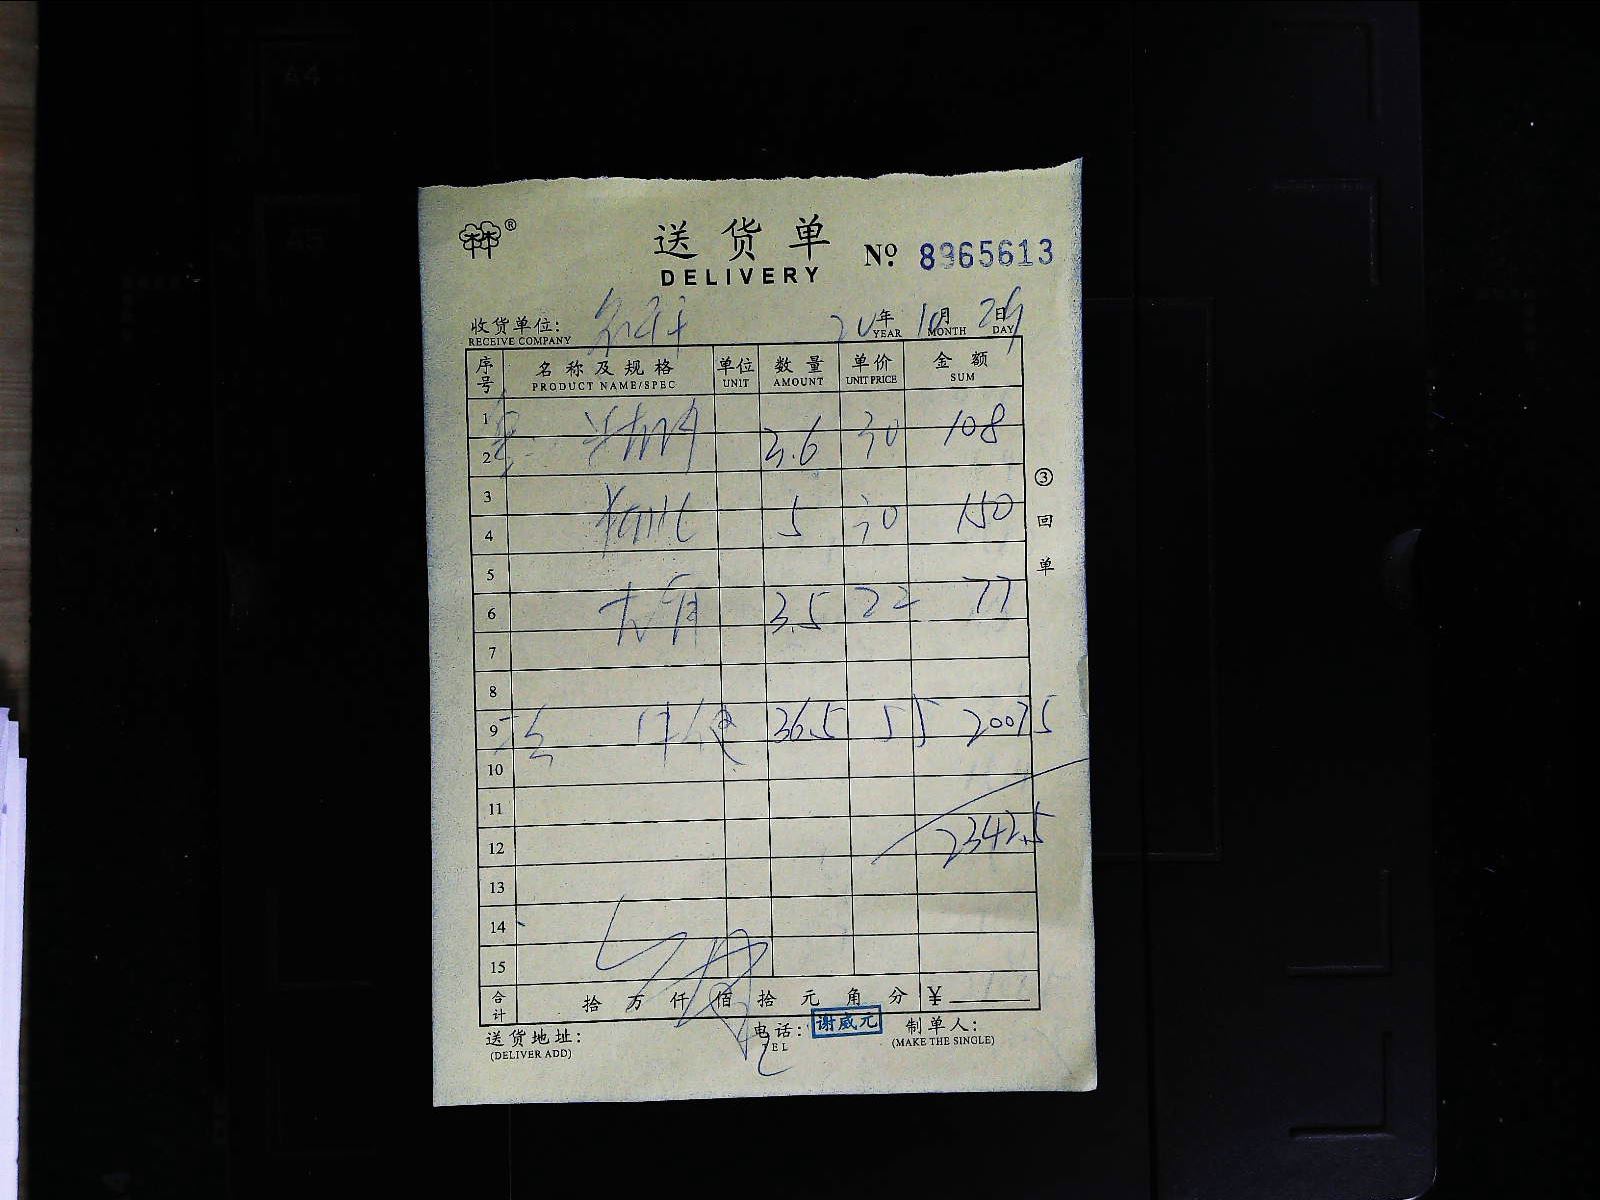 ®
送货单
DELIVERY
№ 8965613
收货单位:
RECEIVE COMPANY
20年 10月 29日
YEAR MONTH DAY
序号 名称及规格 单位 数量 单价 金额
PRODUCT NAME/SPEC UNIT AMOUNT UNIT PRICE SUM
1
2 3.6 30 108
3
4 5 30 150
5
6 3.5 22 77
7
8
9 36.5 55 2007.5
10
11
12 2342.5
13
14
15
合计 拾 万 仟 佰 拾 元 角 分 ¥
③回单
送货地址: 电话: 谢威元 制单人:
(DELIVER ADD) TEL (MAKE THE SINGLE)